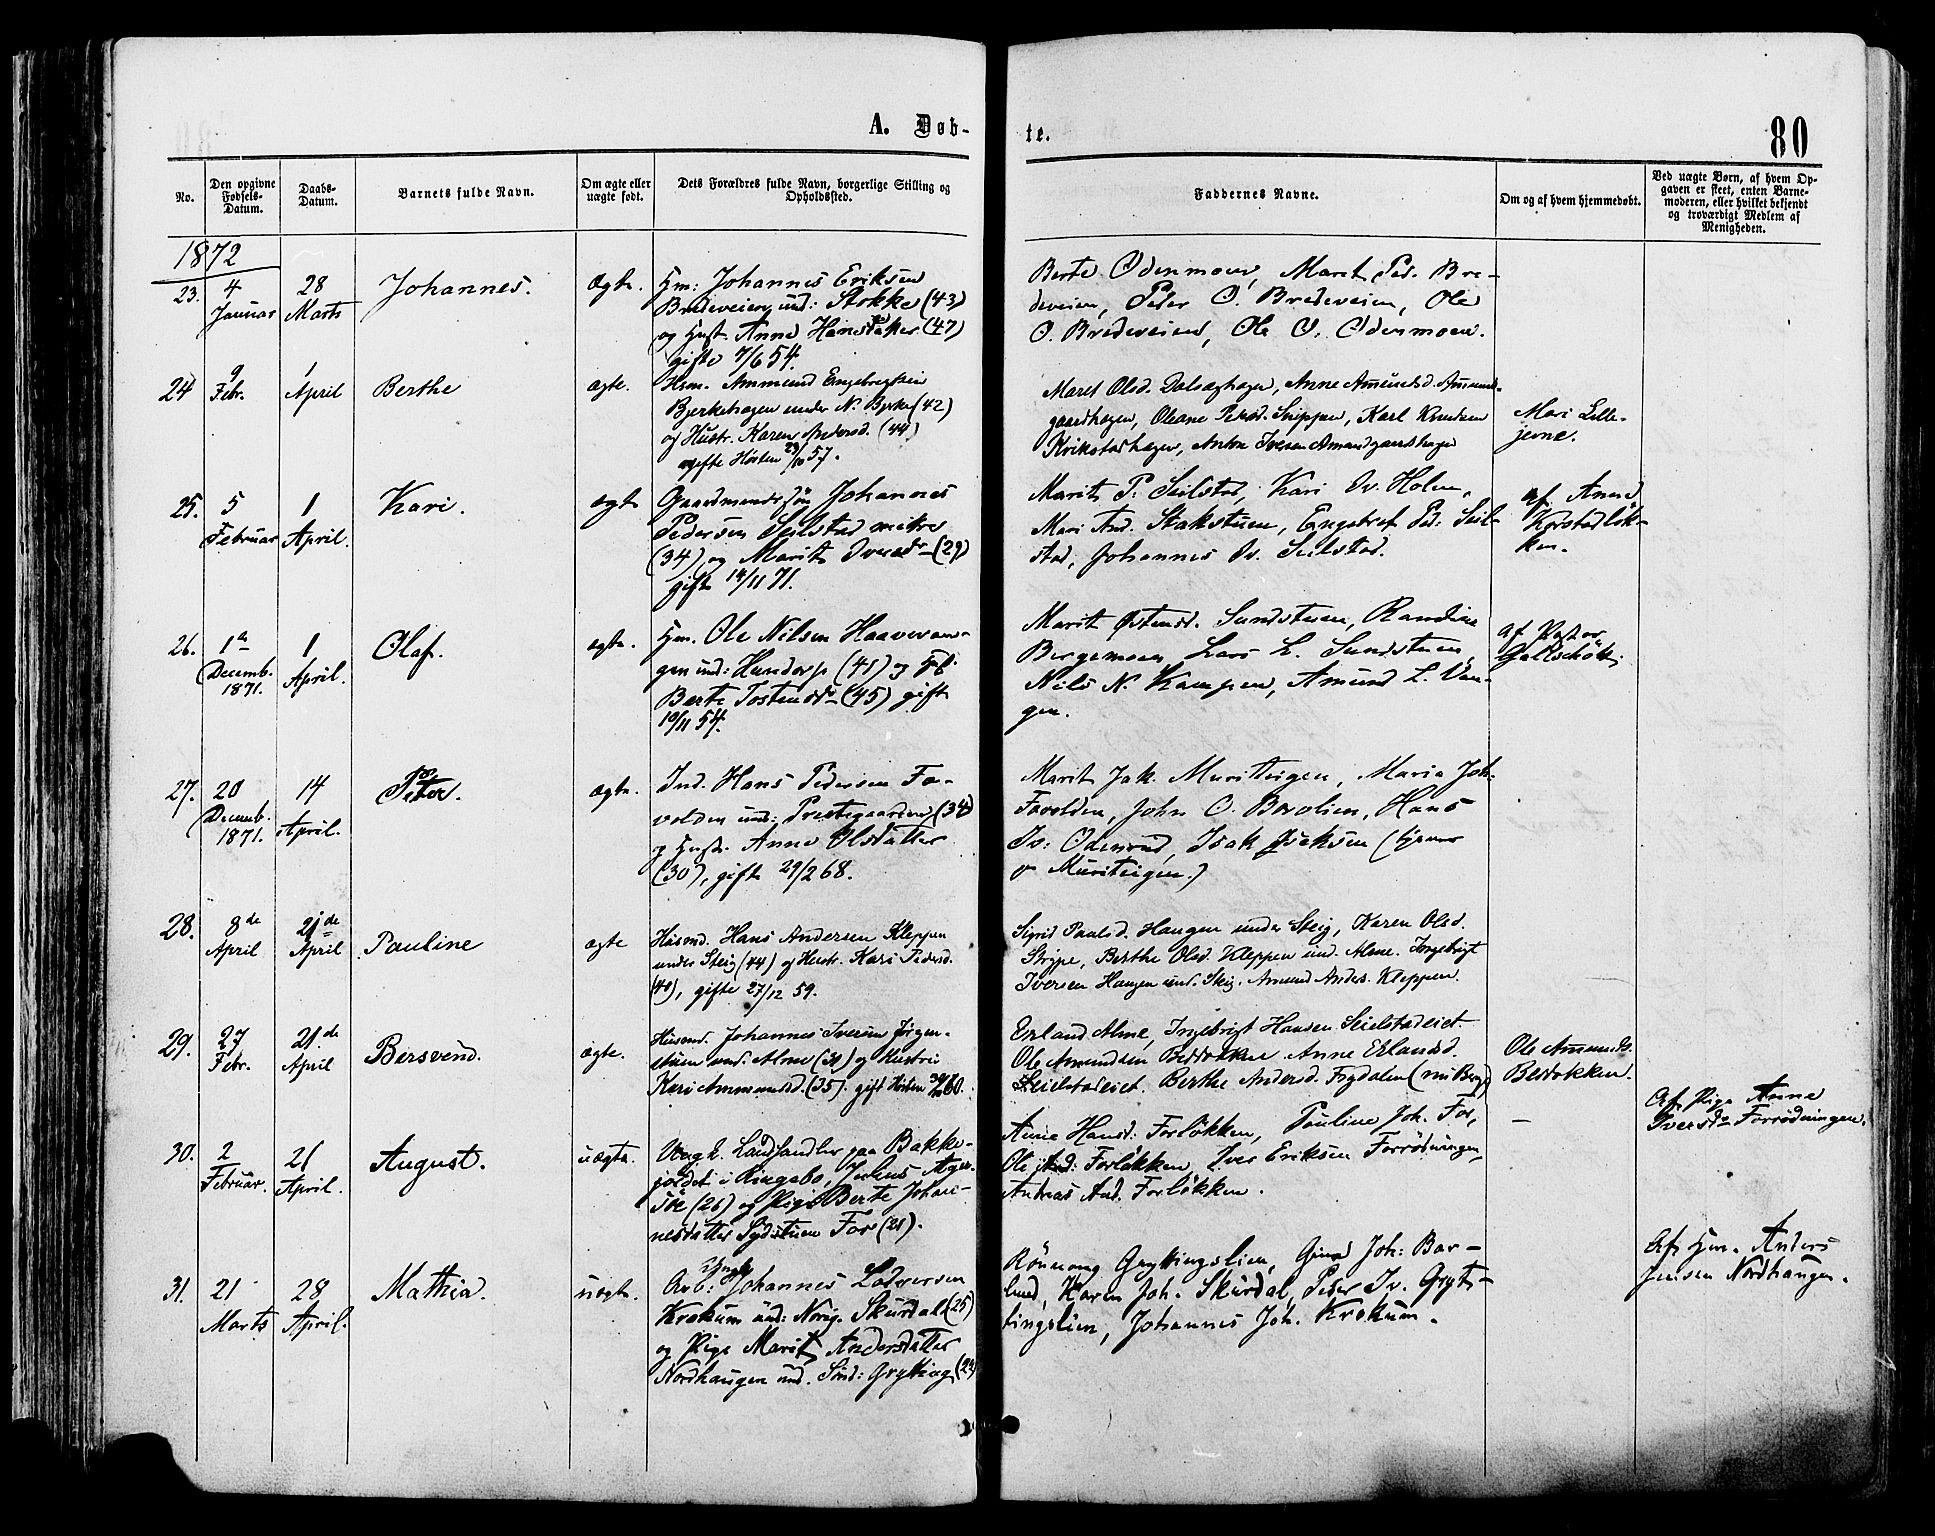 A. Døb-
te.
80
No.
Den opgivne
Fødsels-
Datum.
Daabs-
Datum.
Barnets fulde Navn.
Om ægte eller
uægte født.
Dets Forældres fulde Navn, borgerlige Stilling og
Opholdssted.
Faddernes Navne.
Om og af hvem hjemmedøbt.
Ved uægte Børn, af hvem Op-
gaven er skeet, enten Barne-
moderen, eller hvilket bekjendt
og troværdigt Medlem af
Menigheden.
1872
23.
4
Januar
28
Marts
Johannes.
Ægte.
Hm: Johannes Eriksen
Bredeveien und: Stokke (43)
og Hust. Anne Hansd
(47)
gifte 7/6 54.
Berte Odenmoen, Marit Ped. Bre-
deveien, Peder O. Bredeveien, Ole
O. Bredeveien, Ole O. Odenmoen.
24
9
Febr.
1
April
Berthe
ægte.
Hsm. Ammund Engebregtsen
Bjerkehagen under N. Bjerke (42)
og Hustr. Karen Andersd. (44)
gifte Høsten 23/10 57.
Maret Olsd. Dalseghagen, Anne Amundsd. Amund-
gaardhagen, Oleane Pedersd. Knippen, Karl Knudsen
Krikstadhagen, Anton Iversen Amundgaardhagen
Mari Lille-
jevne.
25.
5
Februar
1
April.
Kari.
ægte
Gaardmandssøn Johannes
Pedersen Seilstad
(34), og Marit Iversdr (29)
gift 14/11 71.
Marit P. Seilstad, Kari Iv. Holen,
Mari And. Stakstuen, Engebret Ped: Seil-
stad, Johannes Iv. Seilstad.
af Anne
Korstadløk-
ken.
26.
1ste
Decemb.
1871.
1
April.
Olaf.
ægte.
Hm. Ole Nilsen Haaveran-
gen und: Hundorp (41) og Hb.
Berte Tostensdr (45) gift
10/11 54.
Marit Østensd. Sundstuen, Randine
Bergemoen, Lars L. Sundstuen,
Nils N. Kampen, Amund L. Van-
gen.
af Pastor
27.
20
Decemb.
1871.
14
April.
Peter.
ægte.
Ind. Hans Pedersen Fo-
volden und: Prestegaarden (34)
og Hust. Anne Olsdatter
(30), gift 29/2 68.
Marit Jak. Muriteigen, Maria Joh.
Fovolden, John O. Bovolien, Hans
Iv: Odenrud, Isak Isaksen
Muriteigen.)
28.
8de
April
21de
April
Pauline
ægte
Husmd. Hans Andersen Kleppen
under Steig (44) og Hustr. Kari Pedersd.
(40), gifte 27/12 59.
Sigrid Paulsd. Haugen under Steig, Karen Olsd.
Stripe, Berthe Olsd. Kleppen und. Alme. Ingebrigt
Iversen Haugen und. Steig. Amund Anders. Kleppen.
29.
27
Febr.
21de
April
Bersvend.
ægte.
Husmd. Johannes Iversen Jørgen-
stuen und. Alme (31) og Hustru
Kari Ammundsd. (35). gift Høsten 60.
Erland Alme, Ingebrigt Hansen Seielstadeiet.
Ole Amundsen Bervokken Anne Erlandsd.
Seielstadeiet. Berthe Andersd. Frydalen (nu Berg)
Ole Amunds.
Bervokken.
30.
2
Februar.
21
April.
August.
uægte.
Ungk. Landhandler paa Bakke-
jordet i Ringebo, Julius
(26) og Pige Berte Johan-
nesdatter Sydstuen For (21).
Anne Hansd: Forløkken, Pauline Joh. For,
Ole And: Forløkken, Iver Eriksen Forrødningen,
Andreas And. Forløkken.
—
Af Pige Anne
Iversdr Forrødningen.
31.
21
Marts
28
April.
Mathia.
uægte.
Ungk.
Arb: Johannes Lodversen
Krokum und: Norig. Skurdal (25)
og Pige Marit Andersdatter
Nordhaugen und. Sønd: Grytting (24)
Rönnaug Gryttingslien, Joh: Bar-
lund, Karen Joh. Skurdal, Peder Iv. Gryt-
tingslien, Johannes Joh. Krokum.
Af Hm. Anders
Jensen Nordhaugen.